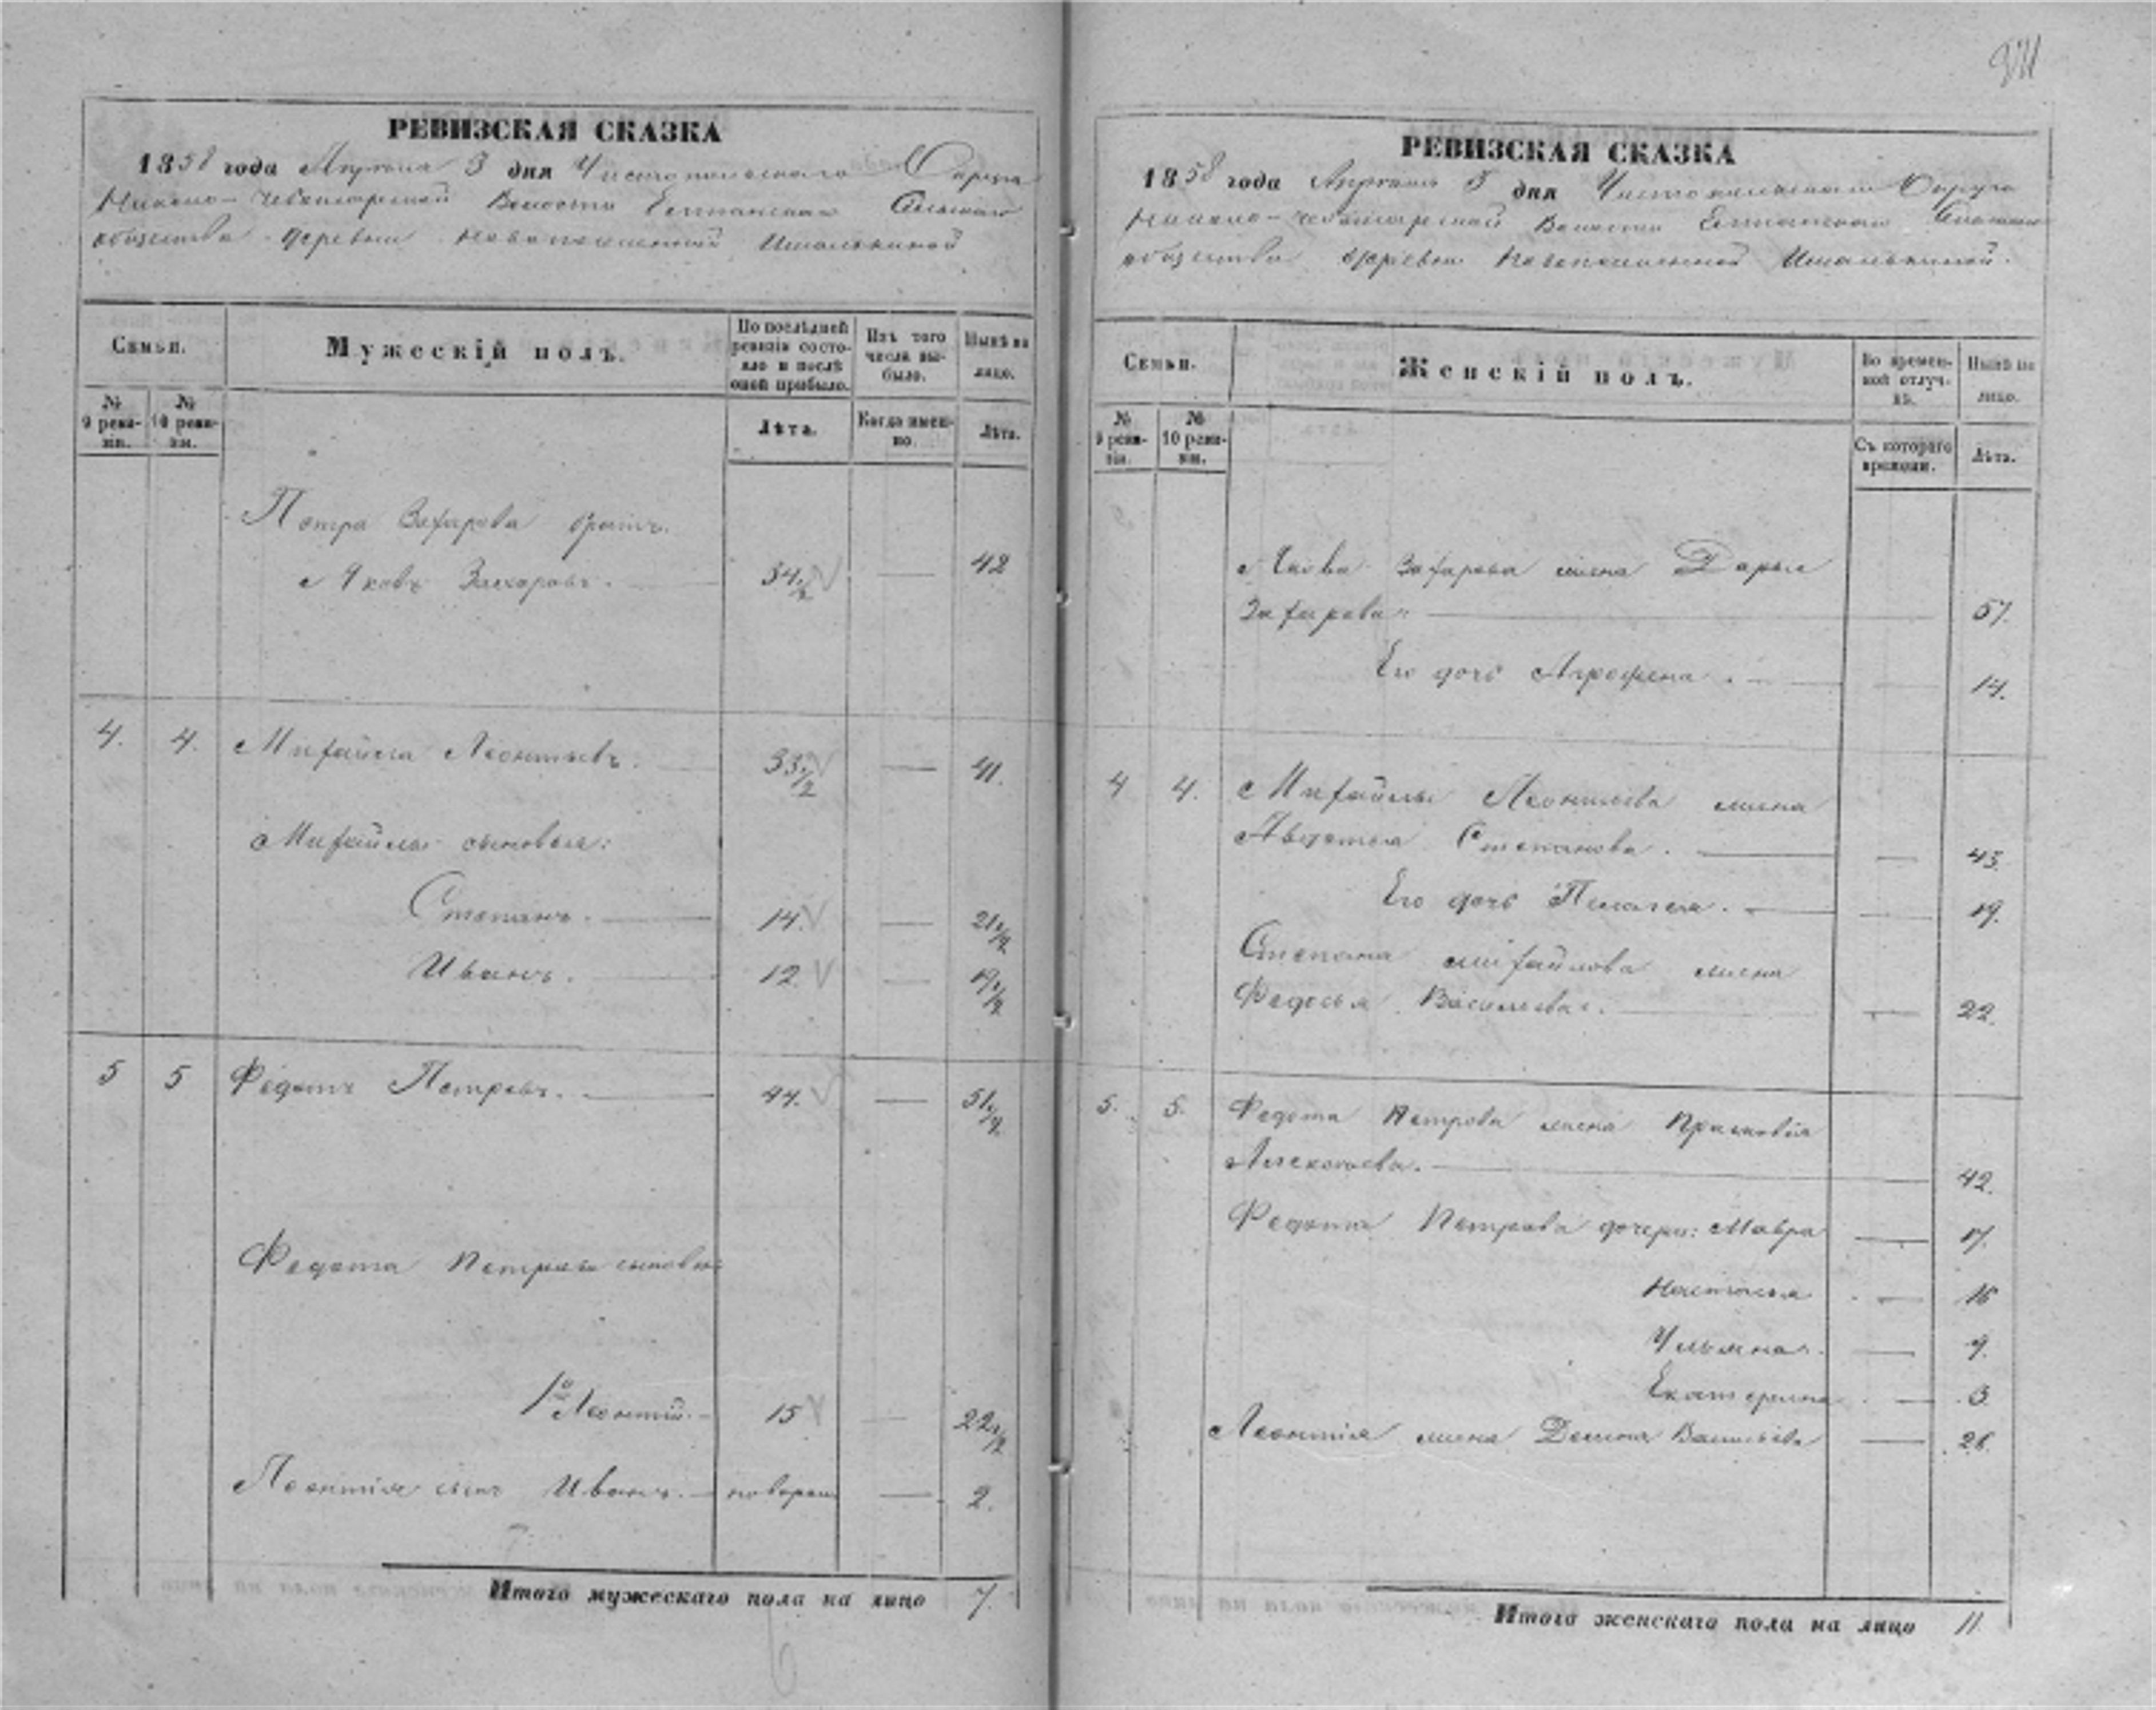 РЕВИЗСКАЯ СКАЗКА
1858 года Апреля 3 дня Чистопольскаго Округа
Волости Сельскаго
общества деревни Новопоселенной
Семьи.
Мужескій полъ.
По послѣдней ревизіи состояло и послѣ оной прибыло.
Изъ того числа выбыло.
Нынѣ на лицо.
№ 9 ревизіи.
№ 10 ревизіи.
Лѣта.
Когда именно.
Лѣта.
Петра Захарова братъ
Яковъ Захаровъ. 34 1/2 — 42
4. 4. Михайла Леонтьевъ. 33 1/2 — 41.
Михайлы сыновья:
Степанъ. 14. — 21 1/2
Иванъ. 12 — 19 1/2
5 5 Федотъ Петровъ. 44. — 51 1/2
Федота Петрова сыновья
1й Леонтій. 15 — 22 1/2
Леонтія сынъ Иванъ. новорож — 2.
Итого мужескаго пола на лицо 7.
РЕВИЗСКАЯ СКАЗКА
1858 года Апреля 3 дня Чистопольскаго Округа
Волости
общества деревни Новопоселенной
Семьи.
Женскій полъ.
Во временной отлучкѣ.
Нынѣ на лицо.
№ 9 ревизіи.
№ 10 ревизіи.
Съ котораго времени.
Лѣта.
Якова Захарова жена Дарья
Захарова — 57.
Его дочь Агрофена. — 14.
4 4. Михайлы Леонтьева жена
Авдотья Степанова. — 43.
Его дочь Пелагея. — 19.
Степана Михайлова жена
Федосья Васильева. — 22.
5. 5. Федота Петрова жена Прасковья
Алексеева. — 42.
Федота Петрова дочери: Мавра — 17.
Настасья — 16
Ульяна. — 9.
Екатерина — 3
Леонтія жена Васильева — 26.
Итого женскаго пола на лицо 11